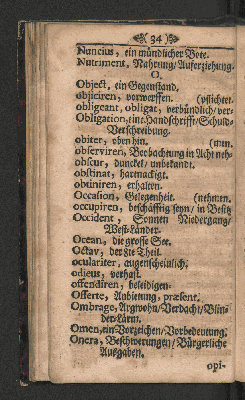 34
Nuncius, ein mündlicher Bote.
Nutriment, Nahrung/ Auferziehung.
O.
Object, ein Gegenstand.
objiciren, vorwerffen. (pflichtet.
obligeant, obligat, verbündlich/ ver-
Obligation, eine Handschrifft/ Schuld-
Verschreibung.
obiter, oben hin. (men.
observiren, Beobachtung in Acht neh-
obscur, dunckel/ unbekandt.
obstinat, hartnäckigt.
obtiniren, erhalten.
Occasion, Gelegenheit. (nehmen.
occupiren, beschäfftig seyn/ in Besitz
Occident, Sonnen Niedergang/
West-Länder.
Ocean, die grosse See.
Octav, der 8te Theil.
oculariter, augenscheinlich.
odieus, verhast.
offendiren, beleidigen.
Offerte, Anbietung, præsent.
Ombrage, Argwohn/ Verdacht/ Blin-
der Lärm.
Omen, ein Vorzeichen/ Vorbedeutung.
Onera, Beschwerungen/ Bürgerliche
Ausgaben.
opi-